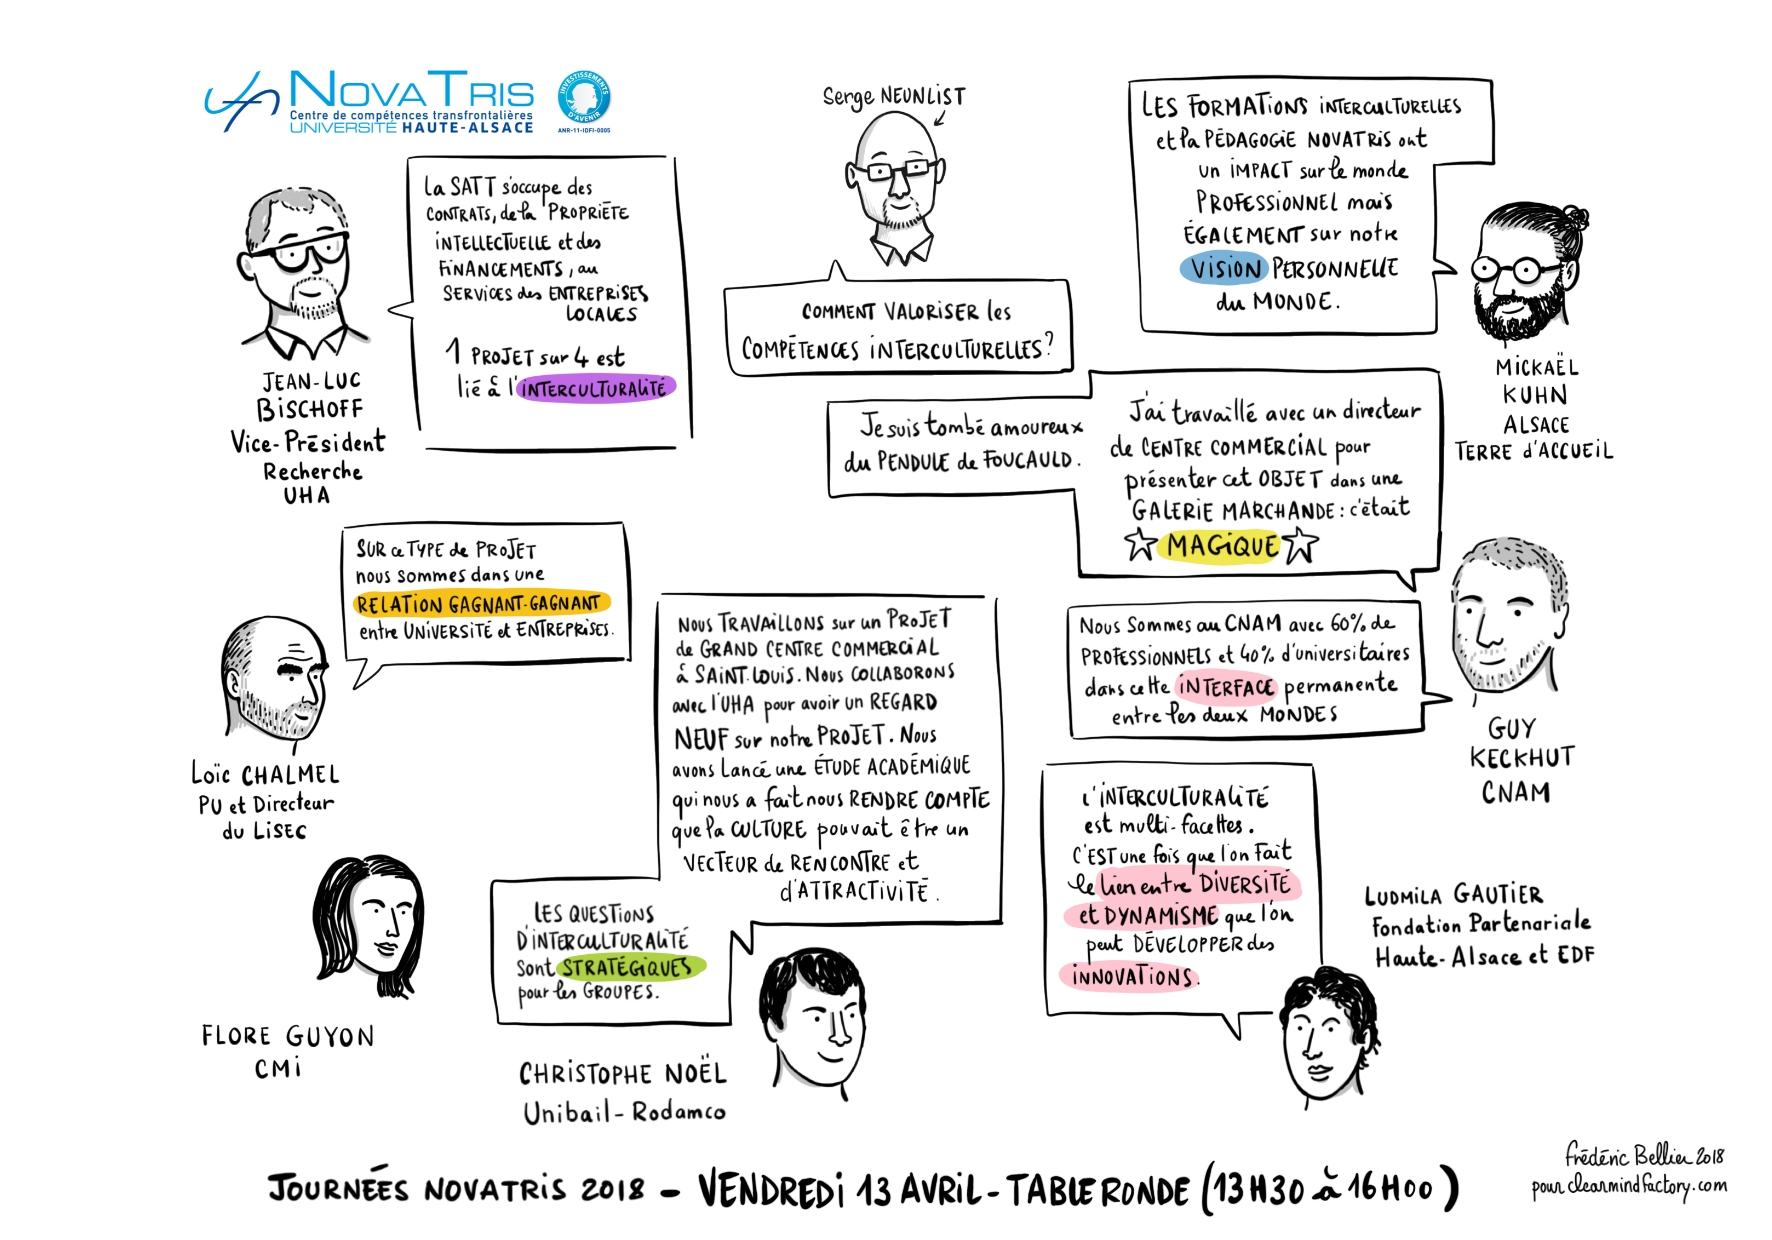 NOVATRIS
Centre de compétences transfrontalières
UNIVERSITÉ HAUTE-ALSACE
INVESTISSEMENTS
D'AVENIR
ANR-11-IDFI-0005
La SATT s'occupe des
CONTRATS, de la PROPRIÉTÉ
INTELLECTUELLE et des
FINANCEMENTS, au
SERVICES des ENTREPRISES
LOCALES
1 PROJET sur 4 est
lié à l'INTERCULTURALITÉ
JEAN-LUC
BISCHOFF
Vice-Président
Recherche
UHA
Serge NEUNLIST
COMMENT VALORISER les
COMPÉTENCES INTERCULTURELLES?
LES FORMATIONS INTERCULTURELLES
et la PÉDAGOGIE NOVATRIS ont
un IMPACT sur le monde
PROFESSIONNEL mais
ÉGALEMENT sur notre
VISION PERSONNELLE
du MONDE.
MICKAËL
KUHN
ALSACE
TERRE d'ACCUEIL
Je suis tombé amoureux
du PENDULE de FOUCAULD.
J'ai travaillé avec un directeur
de CENTRE COMMERCIAL pour
présenter cet OBJET dans une
GALERIE MARCHANDE : c'était
MAGIQUE
Nous Sommes au CNAM avec 60% de
PROFESSIONNELS et 40% d'universitaires
dans cette INTERFACE permanente
entre les deux MONDES
GUY
KECKHUT
CNAM
SUR ce TYPE de PROJET
nous sommes dans une
RELATION GAGNANT-GAGNANT
entre UNIVERSITÉ et ENTREPRISES.
Loïc CHALMEL
PU et Directeur
du LISEC
NOUS TRAVAILLONS sur un PROJET
de GRAND CENTRE COMMERCIAL
à SAINT-LOUIS. NOUS COLLABORONS
avec l'UHA pour avoir un REGARD
NEUF sur notre PROJET. Nous
avons lancé une ÉTUDE ACADÉMIQUE
qui nous a fait nous RENDRE COMPTE
que la CULTURE pouvait être un
VECTEUR de RENCONTRE et
d'ATTRACTIVITÉ.
LES QUESTIONS
D'INTERCULTURALITÉ
Sont STRATÉGIQUES
pour les GROUPES.
CHRISTOPHE NOËL
Unibail-Rodamco
FLORE GUYON
CMI
L'INTERCULTURALITÉ
est multi-facettes.
C'EST une fois que l'on fait
le lien entre DIVERSITÉ
et DYNAMISME que l'on
peut DÉVELOPPER des
INNOVATIONS.
LUDMILA GAUTIER
Fondation Partenariale
Haute-Alsace et EDF
JOURNÉES NOVATRIS 2018 - VENDREDI 13 AVRIL - TABLE RONDE (13H30 à 16H00)
Frédéric Bellier 2018
pour clearmindfactory.com